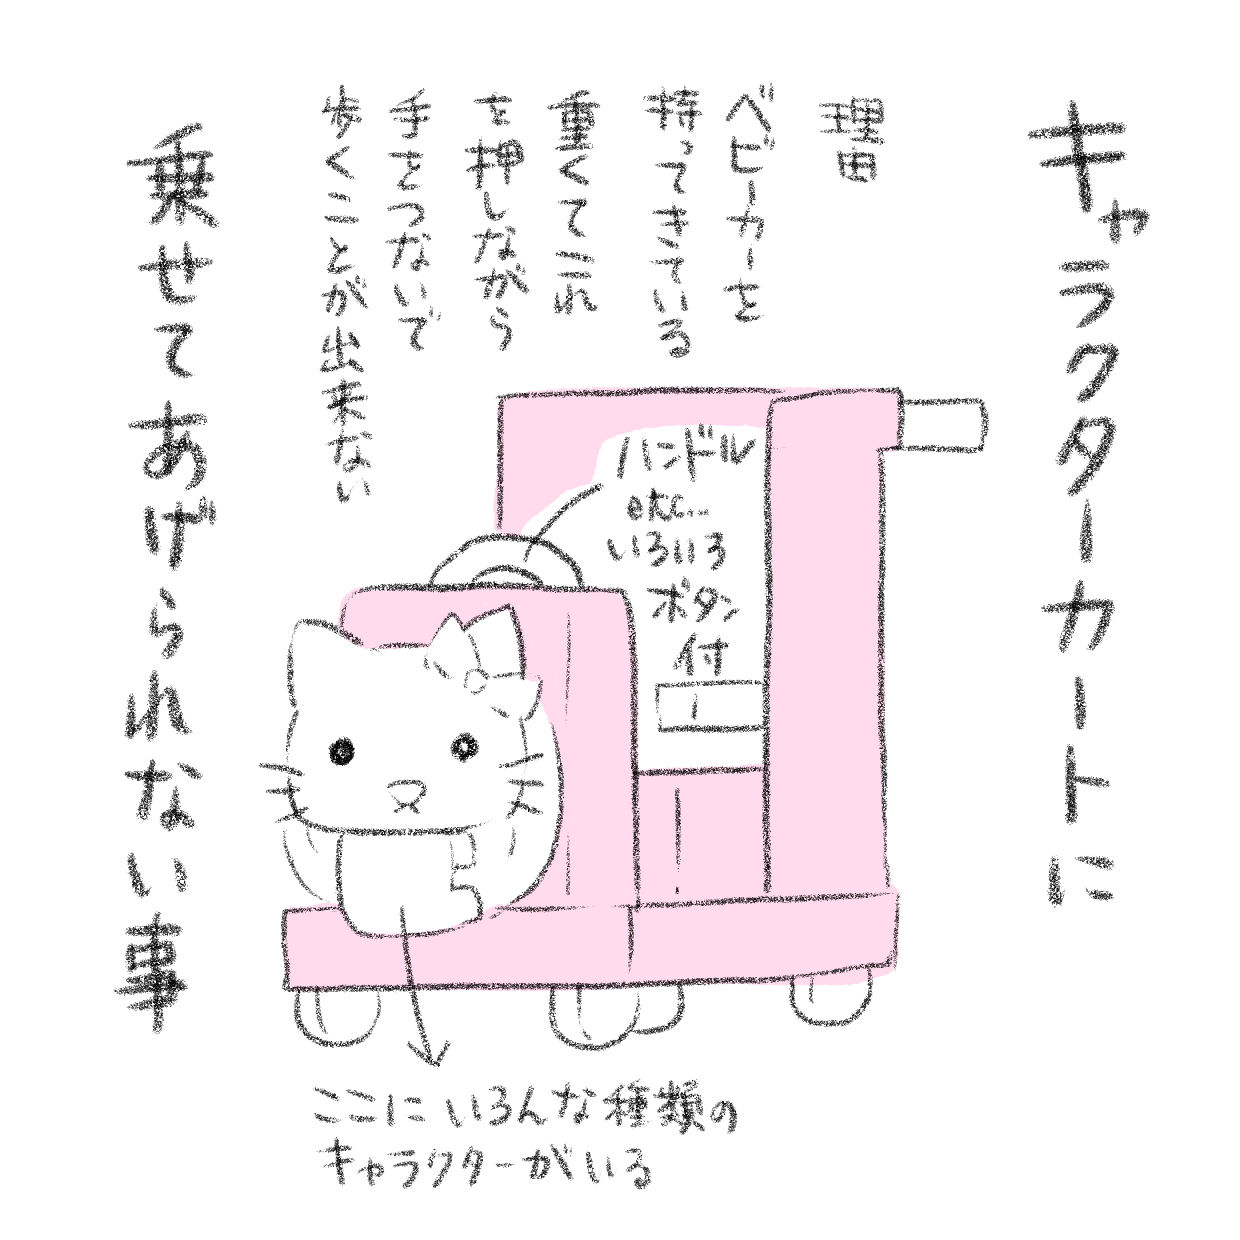 キャラクターカートに
理由
ベビーカーを
持ってきている
重くてこれ
を押しながら
手をつないで
歩くことが出来ない
乗せてあげられない事
ハンドル
etc...
いろいろ
ボタン
付
ここにいろんな種類の
キャラクターがいる